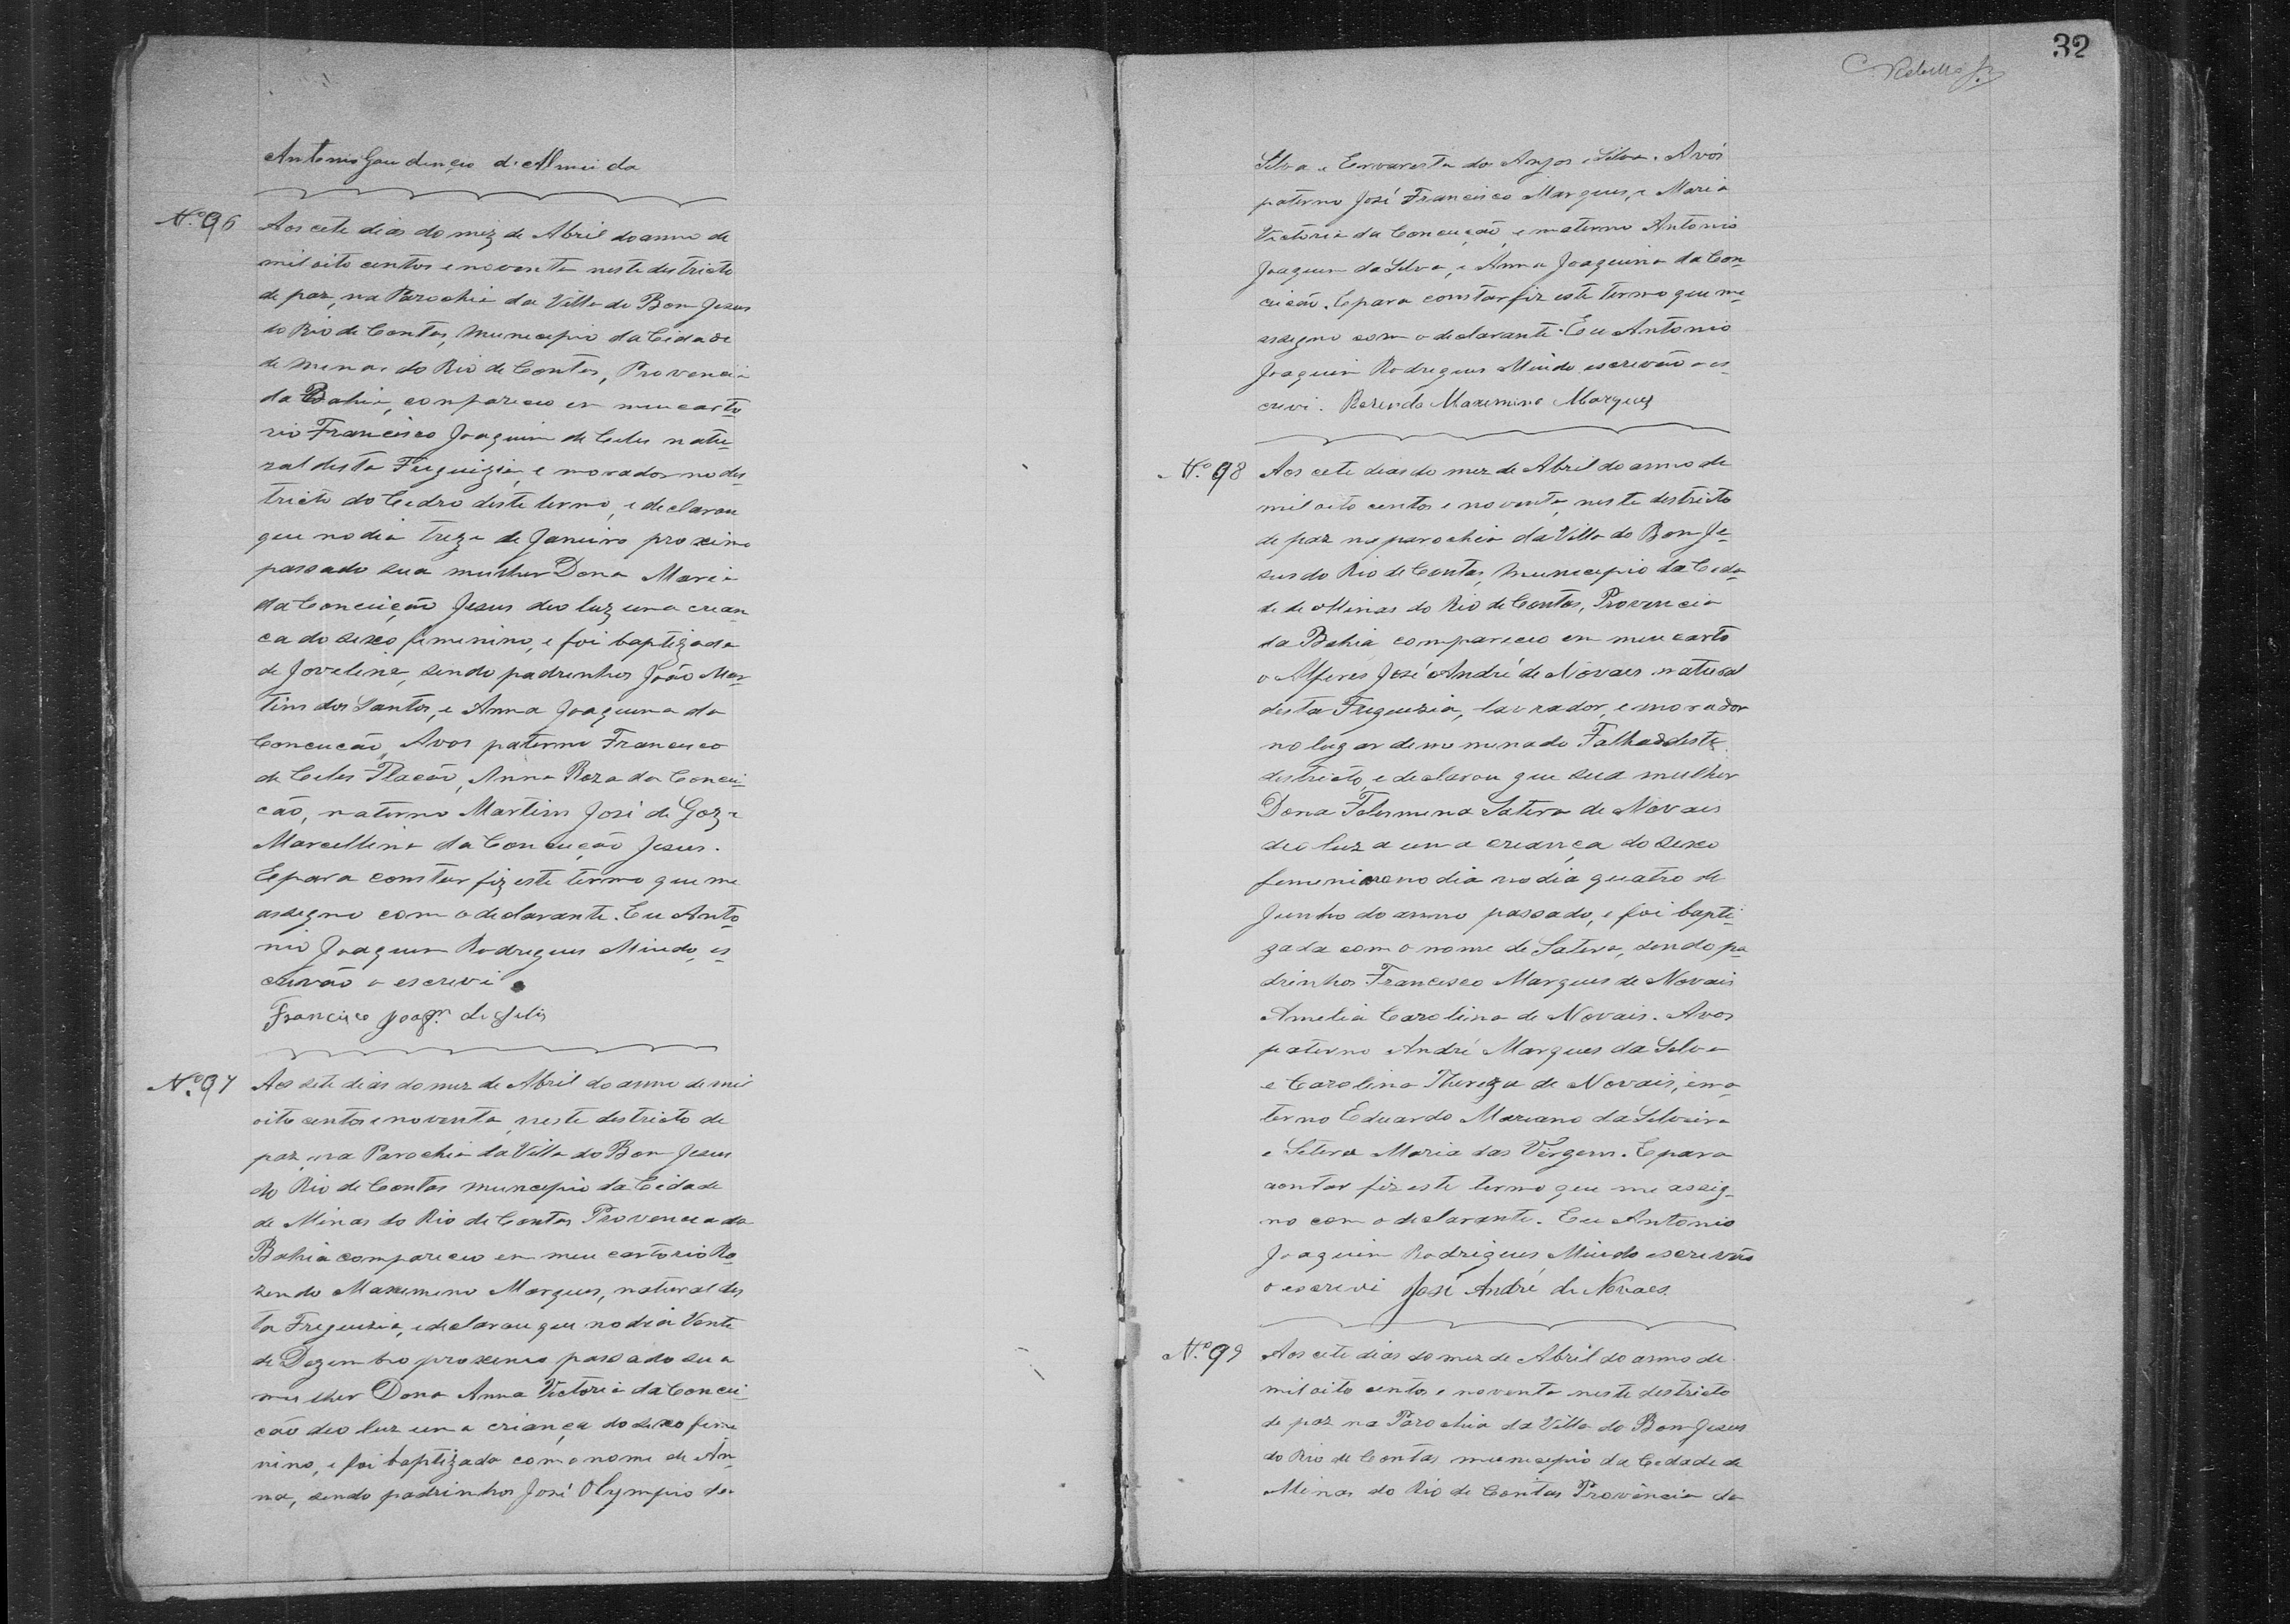 Antonio Gaudencio de Almeida
Nº 96
Aos cete dias do mez de Abril do anno de
mil oito centos e noventa neste destricto
de paz, na Parochia da Villa do Bom Jesus
do Rio de Contas, Municipio da Cidade
de Minas do Rio de Contas, Provencia
da Bahia, compareceo em meu carto
rio Francisco Joaquim de Celes natu-
ral desta Freguizia, e morador no des-
tricto do Cedro deste termo, e declarou
que no dia treze de Janeiro proximo
passado sua mulher Dona Maria
da Conceição Jesus deo luz uma crean-
ca do sexo feminino, e foi baptizada
de Jovelina, sendo padrinhos João Mar-
tins dos Santos, e Anna Joaquina da
Conceicão, Avos paterno Francisco
de Celes, Anna Roza da Concei-
cão, materno Martins José de Goz e
Marcellina da Conceição Jesus.
E para constar fiz este termo que me
assegno com o declarante. Eu Anto-
nio Joaquim Rodrigues Miudo, es-
crivão o escrevi
Francisco Joaqm de Selis
Nº 97
Aos sete dias do mez de Abril do anno de mil
oito centos e noventa, neste destricto de
paz, na Parochia da Villa do Bom Jesus
do Rio de Contas municepio da Cidade
de Minas do Rio de Contas Provencia da
Bahia compareceo em meu cartorio Ro-
zendo Maxemino Marques, natural des-
ta Freguizia, e declarou que no dia Vente
de Dezembro proximo passado sua
mulher Dona Anna Victoria da Concei-
cão deo luz uma criança do sexo feme
nino, e foi baptizada com o nome de An-
na, sendo padrinhos José Olympio da
32
Silva e Envaresta dos Anjos e Silva. Avós
paterno José Francisco Marques, e Maria
Victoria da Conceição, e materno Antonio
Joaquim da Silva, e Anna Joaquina da Con-
ceicão. E para constar fiz este termo que me
assegno com o declarante. Eu Antonio
Joaquim Rodrigues Miudo escrevão o es-
crevi. Rozendo Maxemino Marques
Nº 98
Aos cete dias do mez de Abril do anno de
mil oito centos e noventa, neste destricto
de paz na parochia da Villa do Bom Je-
sus do Rio de Contas, Municepio da Cida-
de de Minas do Rio de Contas, Provencia
da Bahia compareceo em meu carto
o Alferes José André de Novaes natural
desta Freguezia, lavrador, e morador
no lugar denominado Talhado deste
destricto, e declarou que sua mulher
Dona Felismina Satira de Novaes
deo luz a uma creança do sexo
feminino no dia no dia quatro de
Junho do anno passado, e foi bapti-
zada com o nome de Satera, sendo pa-
drinhos Francisco Marques de Novais
Amelia Carolina de Novais. Avos
paterno André Marques da Silva
e Carolina Thereza de Novais, e ma-
terno Eduardo Mariano da Silveira
e Setera Maria das Virgens. E para
contar fiz este termo que me assig-
no com o declarante. Eu Antonio
Joaquim Rodrigues Miudo escrevão
o escrevi José André de Novaes.
Nº 99
Aos cete dias do mez de Abril do anno de
mil oito centos e noventa neste destricto
de paz na Parochia da Villa do Bom Jesus
do Rio de Contas municepio da Cedade de
Minas do Rio de Contas Provincia da